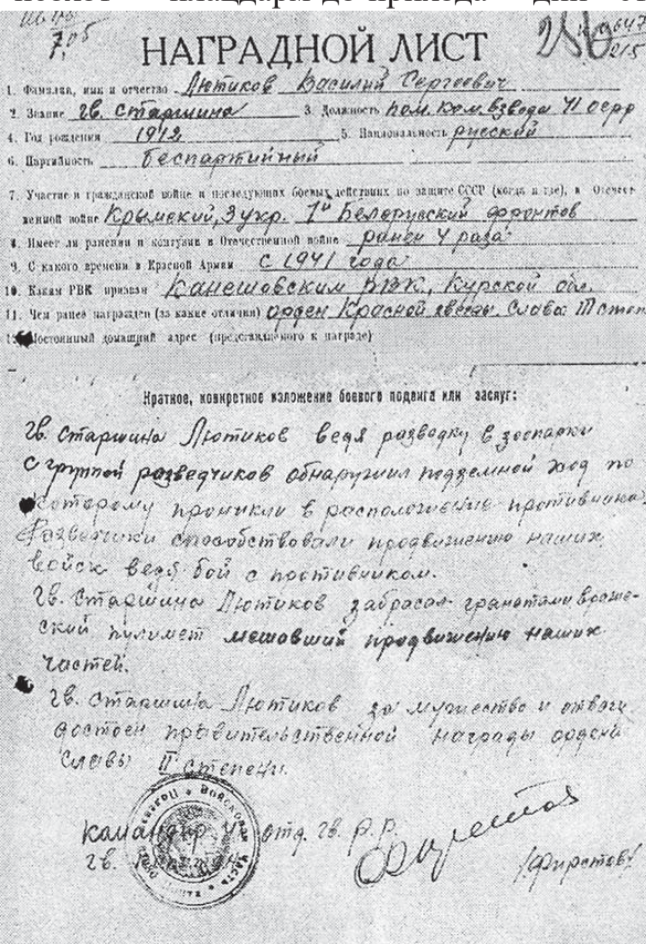 плацдарма до прихода
7.05
НАГРАДНОЙ ЛИСТ
1. Фамилия, имя и отчество Лютиков Василий Сергеевич
2. Звание гв. старшина 3. Должность пом. ком. взвода 41 осрр
4. Год рождения 1912 5. Национальность русский
6. Партийность беспартийный
7. Участие в гражданской войне и последующих боевых действиях по защите СССР (когда и где), в Отечест-
венной войне Крымский, 3 укр. 1й Белорусский фронтов
8. Имеет ли ранения и контузии в Отечественной войне ранен 4 раза
9. С какого времени в Красной Армии с 1941 года
10. Каким РВК призван Канешовским РВК, Курской обл.
11. Чем ранее награжден (за какие отличия) орден Красной звезды. Слава III степ
12. Постоянный домашний адрес (представляемого к награде)
Краткое, конкретное изложение боевого подвига или заслуг:
гв. старшина Лютиков ведя разведку в зоопарки
с группой разведчиков обнаружил подземной ход по
которому проникли в расположение противника.
Разведчики способствовали продвижению наших
войск ведя бой с противником.
гв. старшина Лютиков забрасал гранатами враже-
ский пулимет мешавший продвижению наших
частей.
гв. старшина Лютиков за мужество и отвагу
достоен правительственной награды ордена
Славы II степени.
камандир отд. гв. р.р.
гв.
/Фирстов/